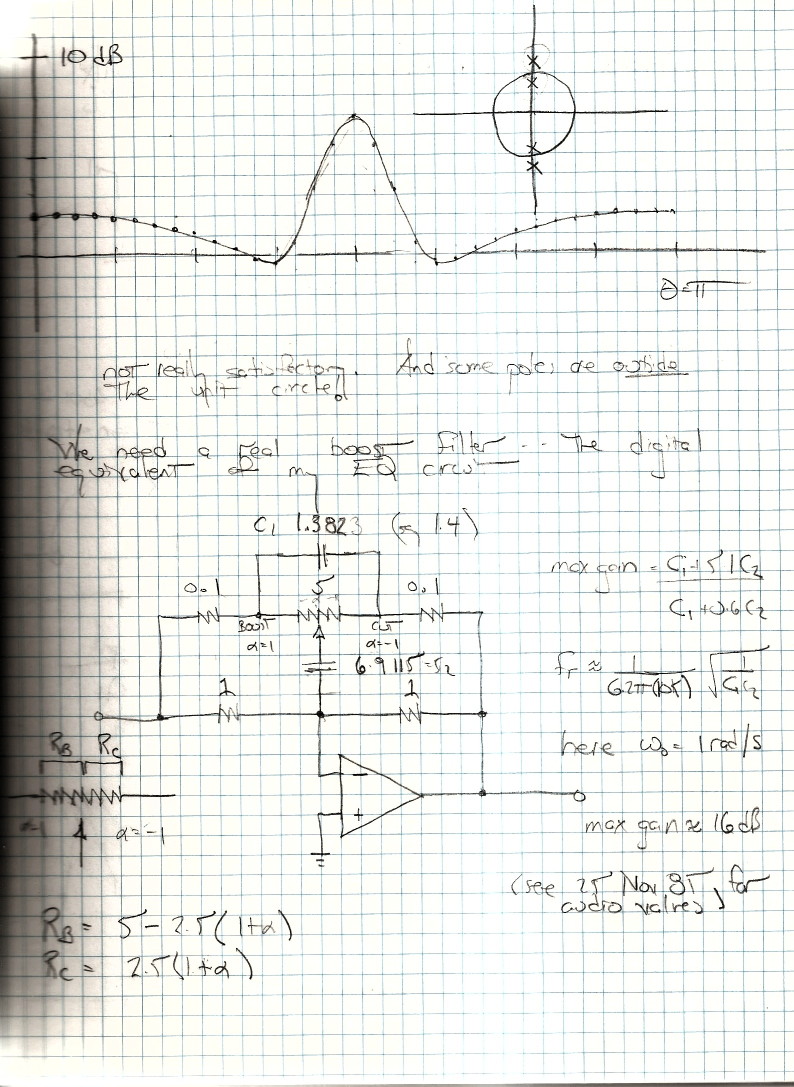 10 dB
θ=π
not really satisfactory. And some poles are outside
the unit circle!
We need a real boost filter -- the digital
equivalent of my EQ circuit
C₁ 1.3823 (≈ 1.4)
0.1 5 0.1
BOOST CUT
α=1 α=-1
6.9115 = C₂
1 1
max gain = C₁+51C₂
C₁+0.6C₂
fᵣ ≈ 1 √1
C₁C₂
here ω₀ = 1 rad/s
R_B R_C
α=-1
− 
+
max gain ≈ 16dB
(see 25 Nov 85, for
audio values)
R_B = 5 - 2.5(1+α)
R_C = 2.5(1+α)